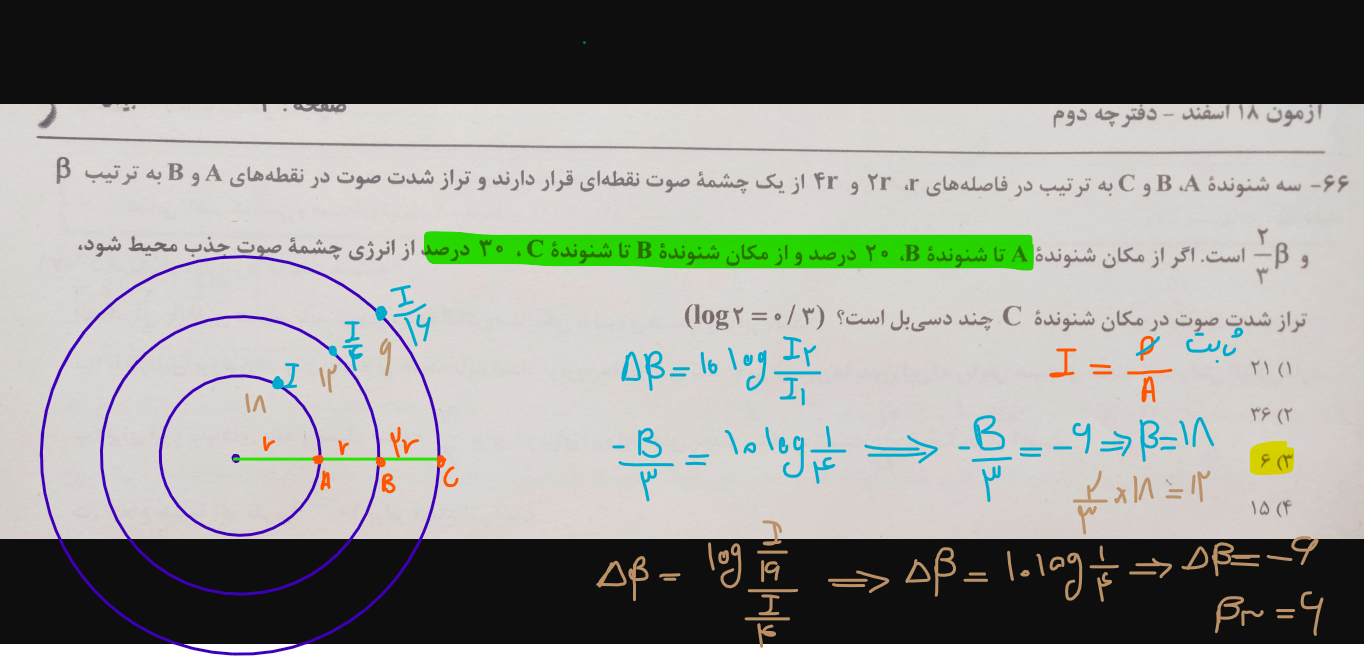 آزمون ۱۸ اسفند - دفترچه دوم
صفحه: ۳
۶۶- سه شنوندۀ B ،A و C به ترتیب در فاصله‌های r، ۲r و ۴r از یک چشمۀ صوت نقطه‌ای قرار دارند و تراز شدت صوت در نقطه‌های A و B به ترتیب β
و ۲/۳ β است. اگر از مکان شنوندۀ A تا شنوندۀ B، ۲۰ درصد و از مکان شنوندۀ B تا شنوندۀ C، ۳۰ درصد از انرژی چشمۀ صوت جذب محیط شود،
تراز شدت صوت در مکان شنوندۀ C چند دسی‌بل است؟ (log۲ = ۰/۳)
۱) ۲۱
۲) ۳۶
۳) ۶
۴) ۱۵
I/۱۶
I/۴
۶
I
۱۲
۱۸
r r ۲r
A B C
Δβ = ۱۰ log I۲/I۱
I = P/A ثابت
-B/۳ = ۱۰ log ۱/۴ ⟹ -B/۳ = -۶ ⇒ β = ۱۸
۲/۳ × ۱۸ = ۱۲
Δβ = log (I/۱۶)/(I/۴) ⟹ Δβ = ۱۰ log ۱/۴ ⇒ Δβ = -۶
β۳ = ۶